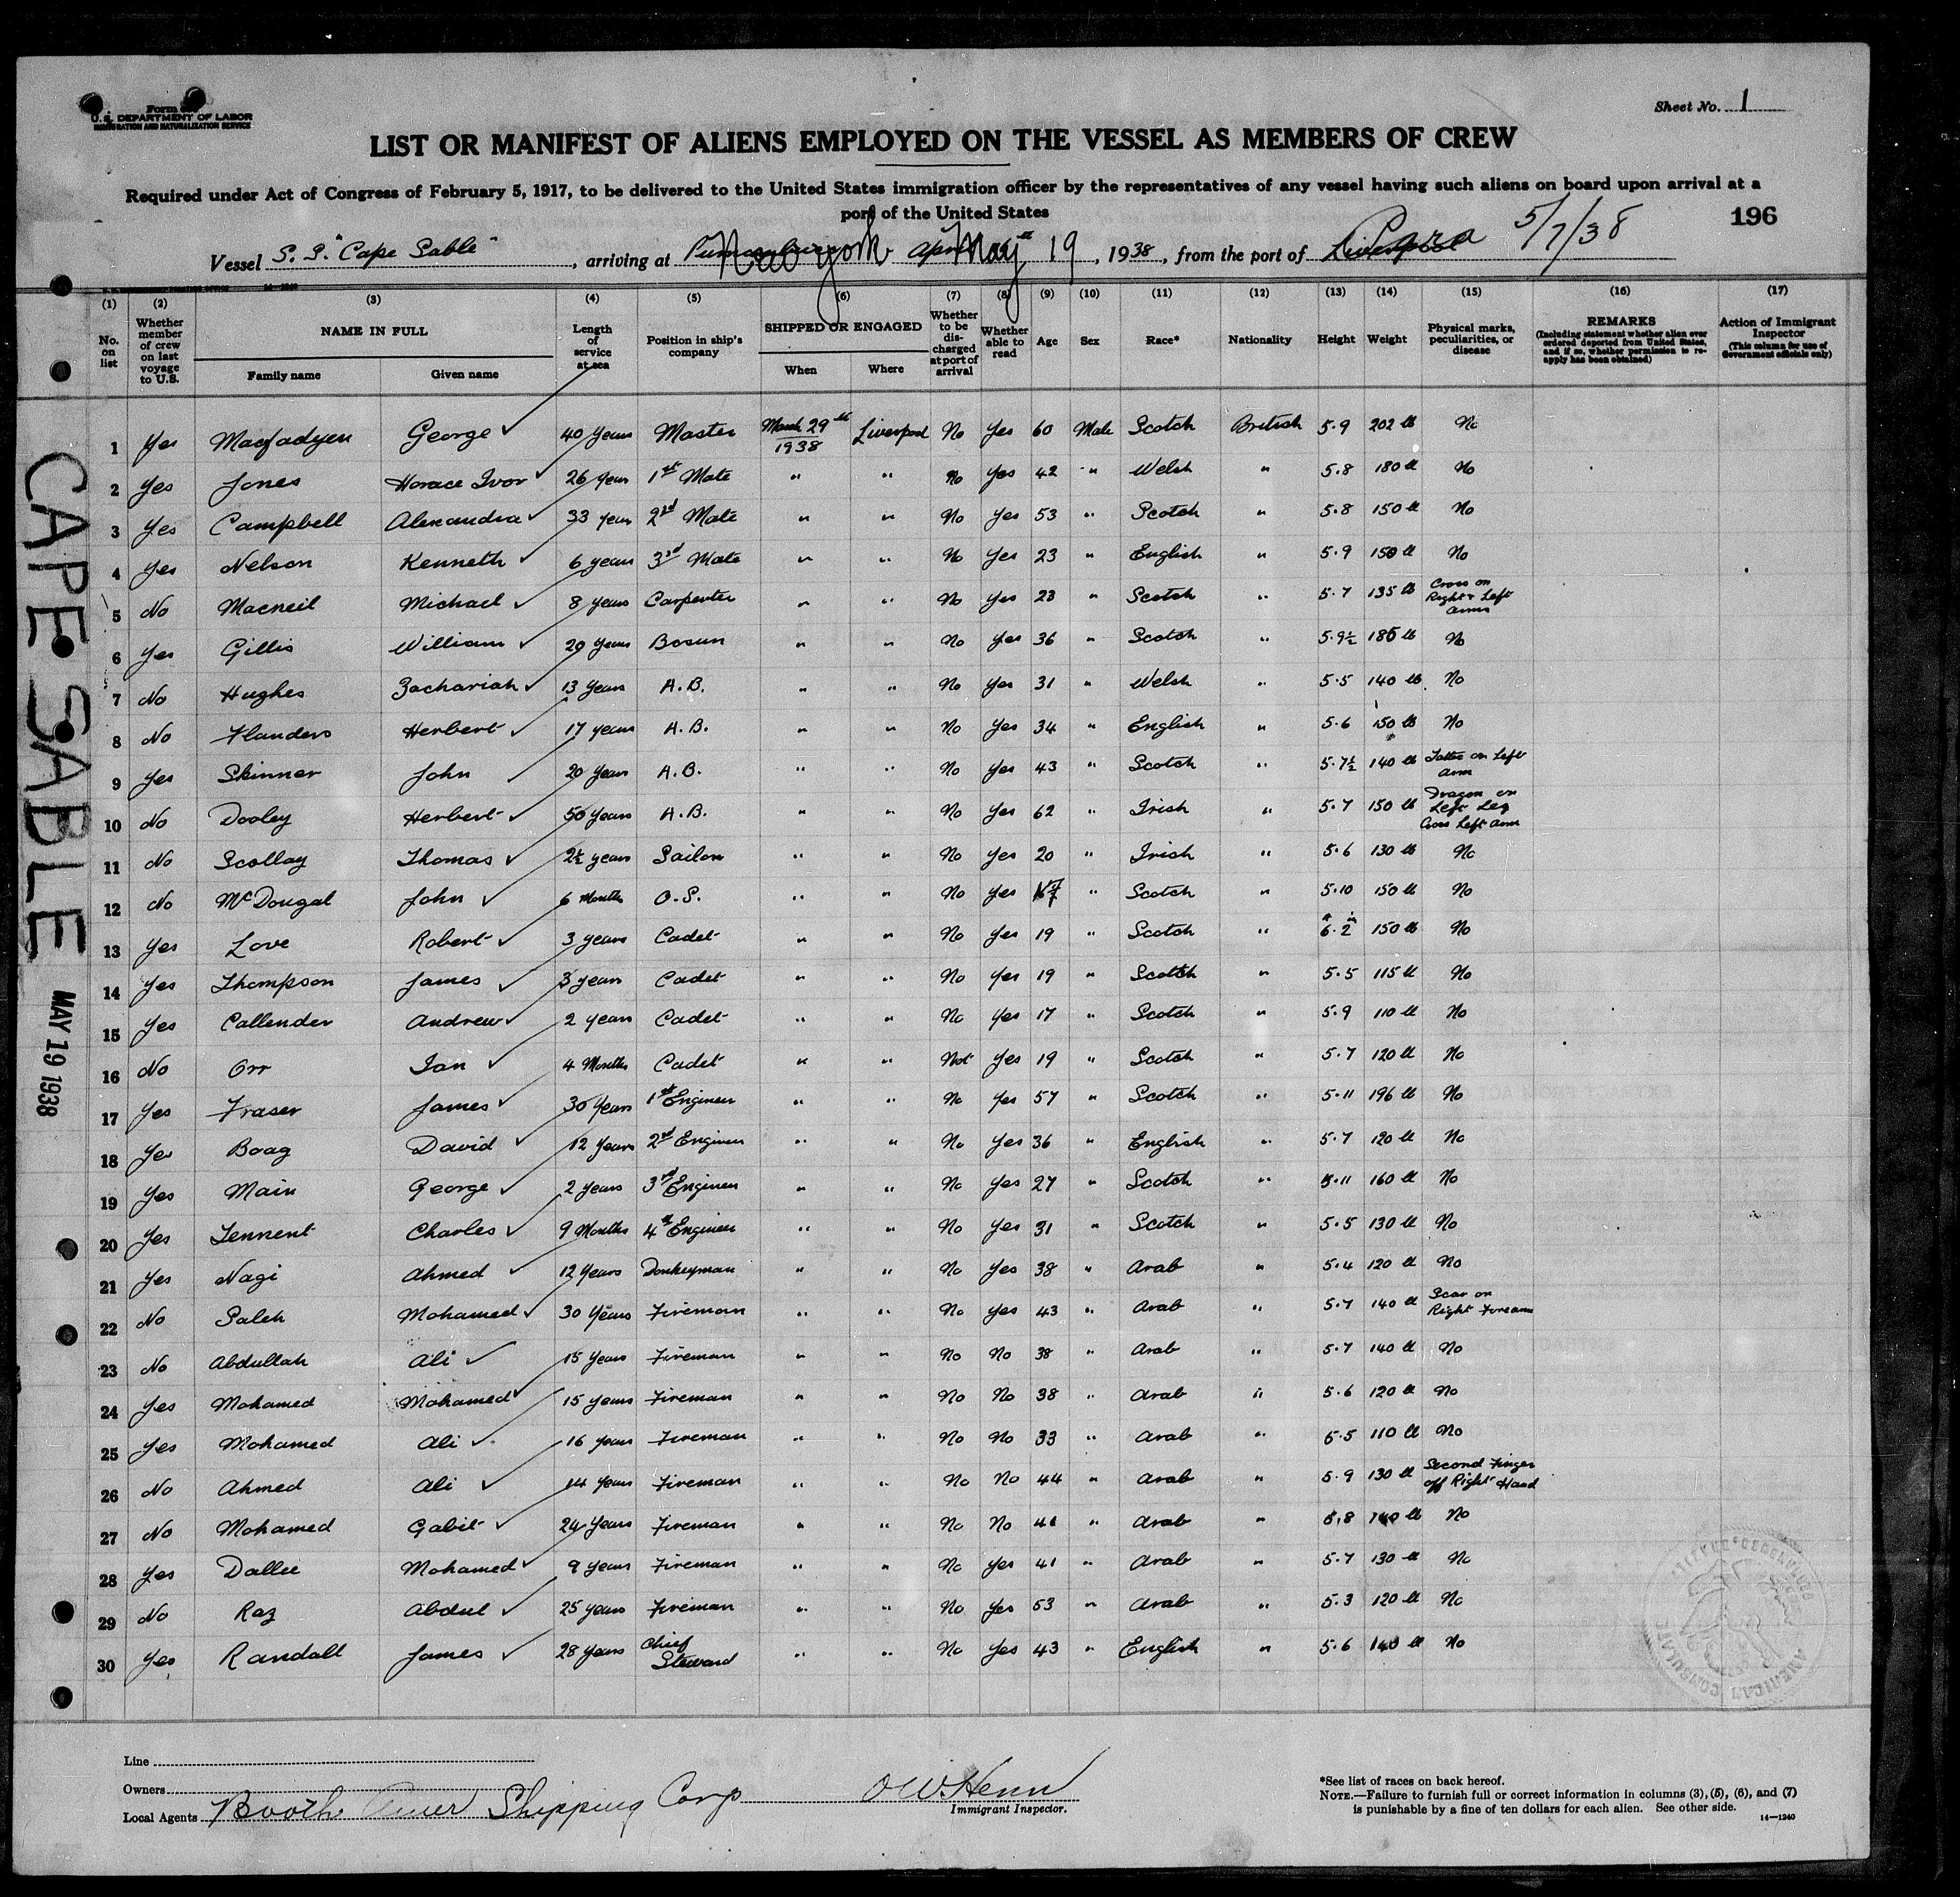 Form
U.S. DEPARTMENT OF LABOR
IMMIGRATION AND NATURALIZATION SERVICE
Sheet No. 1
LIST OR MANIFEST OF ALIENS EMPLOYED ON THE VESSEL AS MEMBERS OF CREW
Required under Act of Congress of February 5, 1917, to be delivered to the United States immigration officer by the representatives of any vessel having such aliens on board upon arrival at a
port of the United States
196
Vessel S.S. "Cape Sable", arriving at New York May 19, 1938, from the port of Para 5/7/38
(1) (2) (3) (4) (5) (6) (7) (8) (9) (10) (11) (12) (13) (14) (15) (16) (17)
No. on list
Whether member of crew on last voyage to U.S.
NAME IN FULL
Family name
Given name
Length of service at sea
Position in ship's company
SHIPPED OR ENGAGED
When
Where
Whether to be discharged at port of arrival
Whether able to read
Age
Sex
Race*
Nationality
Height
Weight
Physical marks, peculiarities, or disease
REMARKS
(Including statement whether alien ever ordered deported from United States, and if so, whether permission to reapply has been obtained)
Action of Immigrant Inspector
(This column for use of Government officials only)
1 Yes Macfadyen George ✓ 40 Years Master March 29th 1938 Liverpool No Yes 60 Male Scotch British 5.9 202 lb No
2 Yes Jones Horace Ivor ✓ 26 Years 1st Mate " " No Yes 42 " Welsh " 5.8 180 lb No
3 Yes Campbell Alexandra ✓ 33 Years 2nd Mate " " No Yes 53 " Scotch " 5.8 150 lb No
4 Yes Nelson Kenneth ✓ 6 years 3rd Mate " " No Yes 23 " English " 5.9 150 lb No
5 No Macneil Michael ✓ 8 years Carpenter " " No Yes 23 " Scotch " 5.7 135 lb Cross on Right & Left arms
6 Yes Gillis William ✓ 20 years Bosun " " No Yes 36 " Scotch " 5.9½ 185 lb No
7 No Hughes Zachariah ✓ 13 Years A.B. " " No Yes 31 " Welsh " 5.5 140 lb No
8 No Flanders Herbert ✓ 17 years A.B. " " No Yes 34 " English " 5.6 150 lb No
9 Yes Skinner John ✓ 20 Years A.B. " " No Yes 43 " Scotch " 5.7½ 140 lb Tattoo on Left arm
10 No Dooley Herbert ✓ 50 Years A.B. " " No Yes 62 " Irish " 5.7 150 lb Dragon on Left Leg Cross Left arm
11 No Scollay Thomas ✓ 2½ years Sailor " " No Yes 20 " Irish " 5.6 130 lb No
12 No McDougal John ✓ 6 Months O.S. " " No Yes 17 " Scotch " 5.10 150 lb No
13 Yes Love Robert ✓ 3 years Cadet " " No Yes 19 " Scotch " 6.2 150 lb No
14 Yes Thompson James ✓ 3 years Cadet " " No Yes 19 " Scotch " 5.5 115 lb No
15 Yes Callender Andrew ✓ 2 years Cadet " " No Yes 17 " Scotch " 5.9 110 lb No
16 No Orr Ian ✓ 4 Months Cadet " " Not Yes 19 " Scotch " 5.7 120 lb No
17 Yes Fraser James ✓ 30 Years 1st Engineer " " No Yes 57 " Scotch " 5.11 196 lb No
18 Yes Boag David ✓ 12 Years 2nd Engineer " " No Yes 36 " English " 5.7 120 lb No
19 Yes Main George ✓ 2 years 3rd Engineer " " No Yes 27 " Scotch " 5.11 160 lb No
20 Yes Tennent Charles ✓ 9 Months 4th Engineer " " No Yes 31 " Scotch " 5.5 130 lb No
21 Yes Nagi Ahmed ✓ 12 Years Donkeyman " " No Yes 38 " Arab " 5.4 120 lb No
22 No Saleh Mohamed ✓ 30 Years Fireman " " No Yes 43 " Arab " 5.7 140 lb Scar on Right Forearm
23 No Abdullah Ali ✓ 15 Years Fireman " " No No 38 " Arab " 5.7 140 lb No
24 Yes Mohamed Mohamed ✓ 15 years Fireman " " No No 38 " Arab " 5.6 120 lb No
25 Yes Mohamed Ali ✓ 16 years Fireman " " No No 33 " Arab " 5.5 110 lb No
26 No Ahmed Ali ✓ 14 Years Fireman " " No No 44 " Arab " 5.9 130 lb Second Finger off Right Hand
27 No Mohamed Gabit ✓ 24 Years Fireman " " No No " Arab " 5.8 140 lb No
28 Yes Dallee Mohamed ✓ 9 years Fireman " " No Yes 41 " Arab " 5.7 130 lb No
29 No Raz Abdul ✓ 25 years Fireman " " No Yes 53 " Arab " 5.3 120 lb No
30 Yes Randall James ✓ 28 Years Chief Steward " " No Yes 43 " English " 5.6 140 lb No
CAPE SABLE MAY 19 1938
Line
Owners
Local Agents Booth Amer Shipping Corp
O W Henn
Immigrant Inspector.
*See list of races on back hereof.
NOTE.—Failure to furnish full or correct information in columns (3), (5), (6), and (7)
is punishable by a fine of ten dollars for each alien. See other side.
14—1240
AMERICAN CONSULATE